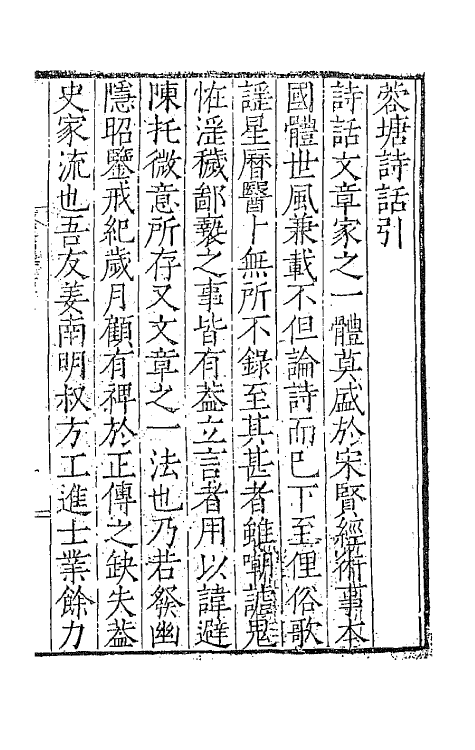 蓉塘詩話引
詩話文章家之一體莫盛於宋賢經術事本
國體世風兼載不但論詩而已下至俚俗歌
謡星曆醫卜無所不錄至其甚者雖嘲謔鬼
怪淫穢鄙褻之事皆有葢立言者用以諱避
陳托微意所存又文章之一法也乃若發幽
隱昭鑒戒紀歲月顧有裨於正傳之缺失葢
史家流也吾友姜南明叔方工進士業餘力